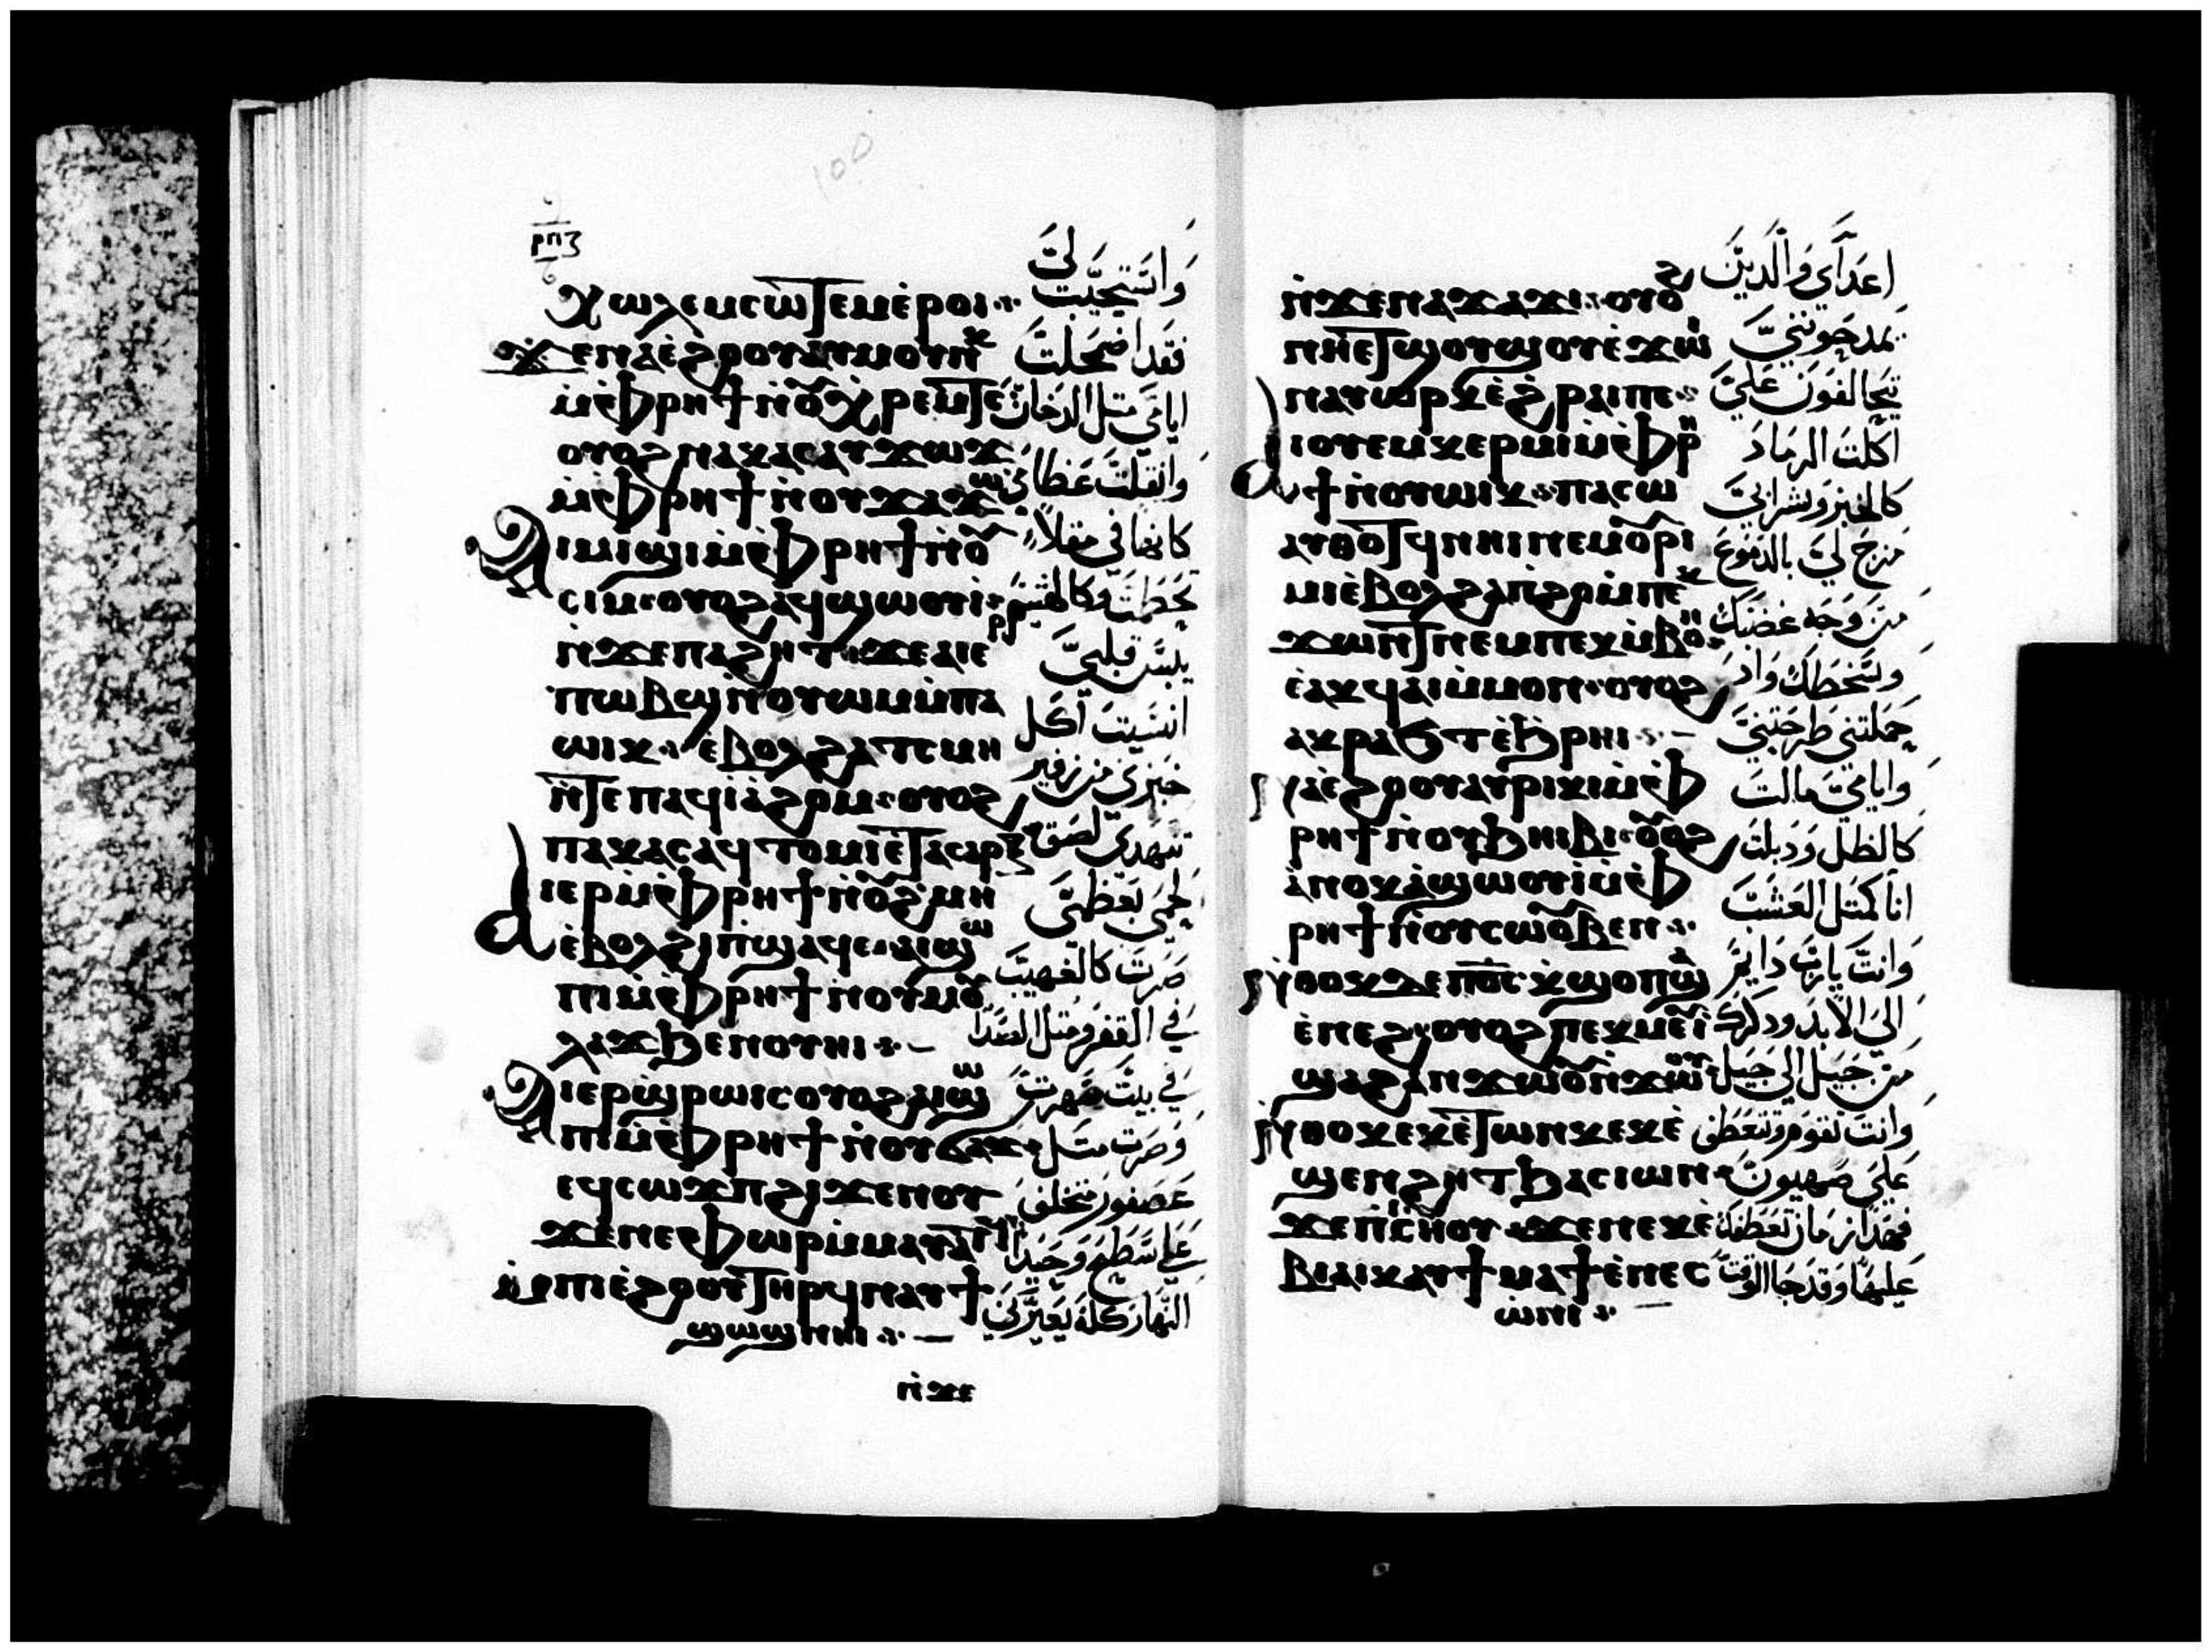 ⲣⲡⲍ
ⲭⲱⲗⲉⲙⲥⲱⲧⲉⲙⲉ̀ⲣⲟⲓ
ϫⲉⲛⲁⲉ̀ϩⲟⲟⲩⲁⲩⲙⲟⲩⲛⲕ
ⲙ̀ⲫⲣⲏϯⲛ̀ⲟⲩⲭⲣⲉⲙⲧⲉ
ⲟⲩⲟϩⲛⲁⲕⲁⲥⲁⲩϫⲱϫ
ⲙ̀ⲫⲣⲏϯⲛ̀ⲟⲩϫⲁϫⲱ
ⲁⲓⲙⲓϣⲓⲙ̀ⲫⲣⲏϯⲛ̀ⲟⲩ
ⲥⲓⲙ ⲟⲩⲟϩⲁϥϣⲱⲟⲩⲓ
ⲛ̀ϫⲉⲡⲁϩⲏⲧ ϫⲉⲁⲓⲉⲣ
ⲡⲱⲃϣⲛ̀ⲟⲩⲱⲙⲙ̀ⲡⲁ
ⲱⲓⲕ ⲉ̀ⲃⲟⲗϩⲁⲧⲥⲙⲏ
ⲛ̀ⲧⲉⲡⲁϥⲓⲁ̀ϩⲟⲙ ⲟⲩⲟϩ
ⲡⲁⲕⲁⲥⲁϥⲧⲟⲙⲓⲉ̀ⲧⲁⲥⲁⲣⲝ
ⲁⲓⲉⲣⲙ̀ⲫⲣⲏϯⲛ̀ⲟⲩϩⲙⲏ
ⲉ̀ⲃⲟⲗϩⲓⲡϣⲁϥⲉ ⲁⲓϣⲱ
ⲡⲓⲙ̀ⲫⲣⲏϯⲛ̀ⲟⲩⲙⲟⲩ
ⲗⲁϫϧⲉⲛⲟⲩⲏⲓ
ⲁⲓⲉⲣϣⲣⲱⲓⲥⲟⲩⲟϩⲁⲓϣⲱ
ⲡⲓⲙ̀ⲫⲣⲏϯⲛ̀ⲟⲩϭⲁϫ
ⲉϥⲥⲱϫⲡϩⲓϫⲉⲛⲟⲩ
ϫⲉⲛⲉⲫⲱⲣⲙ̀ⲙⲁⲩⲁⲧ
ⲙ̀ⲡⲓⲉ̀ϩⲟⲟⲩⲧⲏⲣϥⲛⲁⲩϯ
ϣⲱϣⲛⲏⲓ
ⲛ̀ϫⲉ
واستجيب لي
فقد اضمحلت
ايامي مثل الدخان
وانقلت عظامي
كانها في مقلاه
تحطمت كالحشيش
يبس قلبي
انسيت اكل
خبزي من زفير
تنهدي لصق
لحمي بعظمي
صرت كالغهيب
في القفر ومثل الصدا
في بيت سهرت
وصرت مثل
عصفور متخلف
على سطح وحيدا
النهار كله يعيرني
ⲛ̀ϫⲉⲛⲁϫⲁϫⲓ ⲟⲩⲟϩ
ⲛⲏⲉⲧϣⲟⲩϣⲟⲩⲉ̀ϫⲱⲓ
ⲛⲁⲩⲱⲣⲕⲉ̀ϩⲣⲁⲓⲡⲉ
ⲁⲓⲟⲩⲉⲙⲕⲉⲣⲙⲓⲙ̀ⲫⲣⲏ
ϯⲛ̀ⲟⲩⲱⲓⲕ ⲡⲁⲥⲱ
ⲁⲩⲑⲟⲧϥⲛⲏⲓⲛⲉⲙⲟⲣⲓ
ⲙⲓⲉ̀ⲃⲟⲗϩⲁⲡ̀ϩⲟⲙ̀ⲡⲉⲕ
ϫⲱⲛⲧⲛⲉⲙⲡⲉⲕⲙ̀ⲃⲟⲛ
ⲉⲁⲕϥⲁⲓⲙ̀ⲙⲟⲓ ⲟⲩⲟϩ
ⲁⲕⲣⲁϭⲧⲉ̀ϧⲣⲏⲓ
ⲛⲁⲉ̀ϩⲟⲟⲩⲁⲩⲣⲓⲕⲓⲙ̀ⲫ
ⲣⲏϯⲛ̀ⲟⲩϧⲏⲓⲃⲓ ⲟⲩⲟϩ
ⲁⲛⲟⲕⲁϣⲱⲟⲩⲓⲙ̀ⲫ
ⲣⲏϯⲛ̀ⲟⲩⲥⲱⲟⲩⲃⲉⲛ
ⲛ̀ⲑⲟⲕⲇⲉⲡⲟ̅ⲥ̅ⲕ̀ϣⲟⲡϣⲁ
ⲉ̀ⲛⲉϩ ⲟⲩⲟϩⲡⲉⲕⲙⲉⲩⲓ
ϣⲁϩⲁⲛϫⲱⲟⲩⲛ̀ϫⲱⲟⲩ
ⲛ̀ⲑⲟⲕⲉⲕⲉ̀ⲧⲱⲛⲕⲉⲕⲉ̀
ϣⲉⲛϩⲏⲧϧⲁⲥⲓⲱⲛ
ϫⲉⲡ̀ⲥⲏⲟⲩ ϫⲉⲛⲉⲕⲉ̀
ⲃⲓⲁⲓⲕⲁⲩϯⲙⲁϯⲉ̀ⲛⲉⲥ
ⲱ̀ⲛⲓ
اعداي والذين
يمدحونني
يتحالفون علي
اكلت الرماد
كالخبز وشرابي
مزج لي بالدموع
من وجه غضبك
وسخطك واذ
حملتني طرحتني
وايامي مالت
كالظل ودبلت
انا كمثل العشب
وانت يارب دايم
الي الابد وذكرك
من جيل الي جيل
وانت تقوم وتتعطف
علي صهيون
فهذا زمان تعطفك
عليها وقد جا الوقت